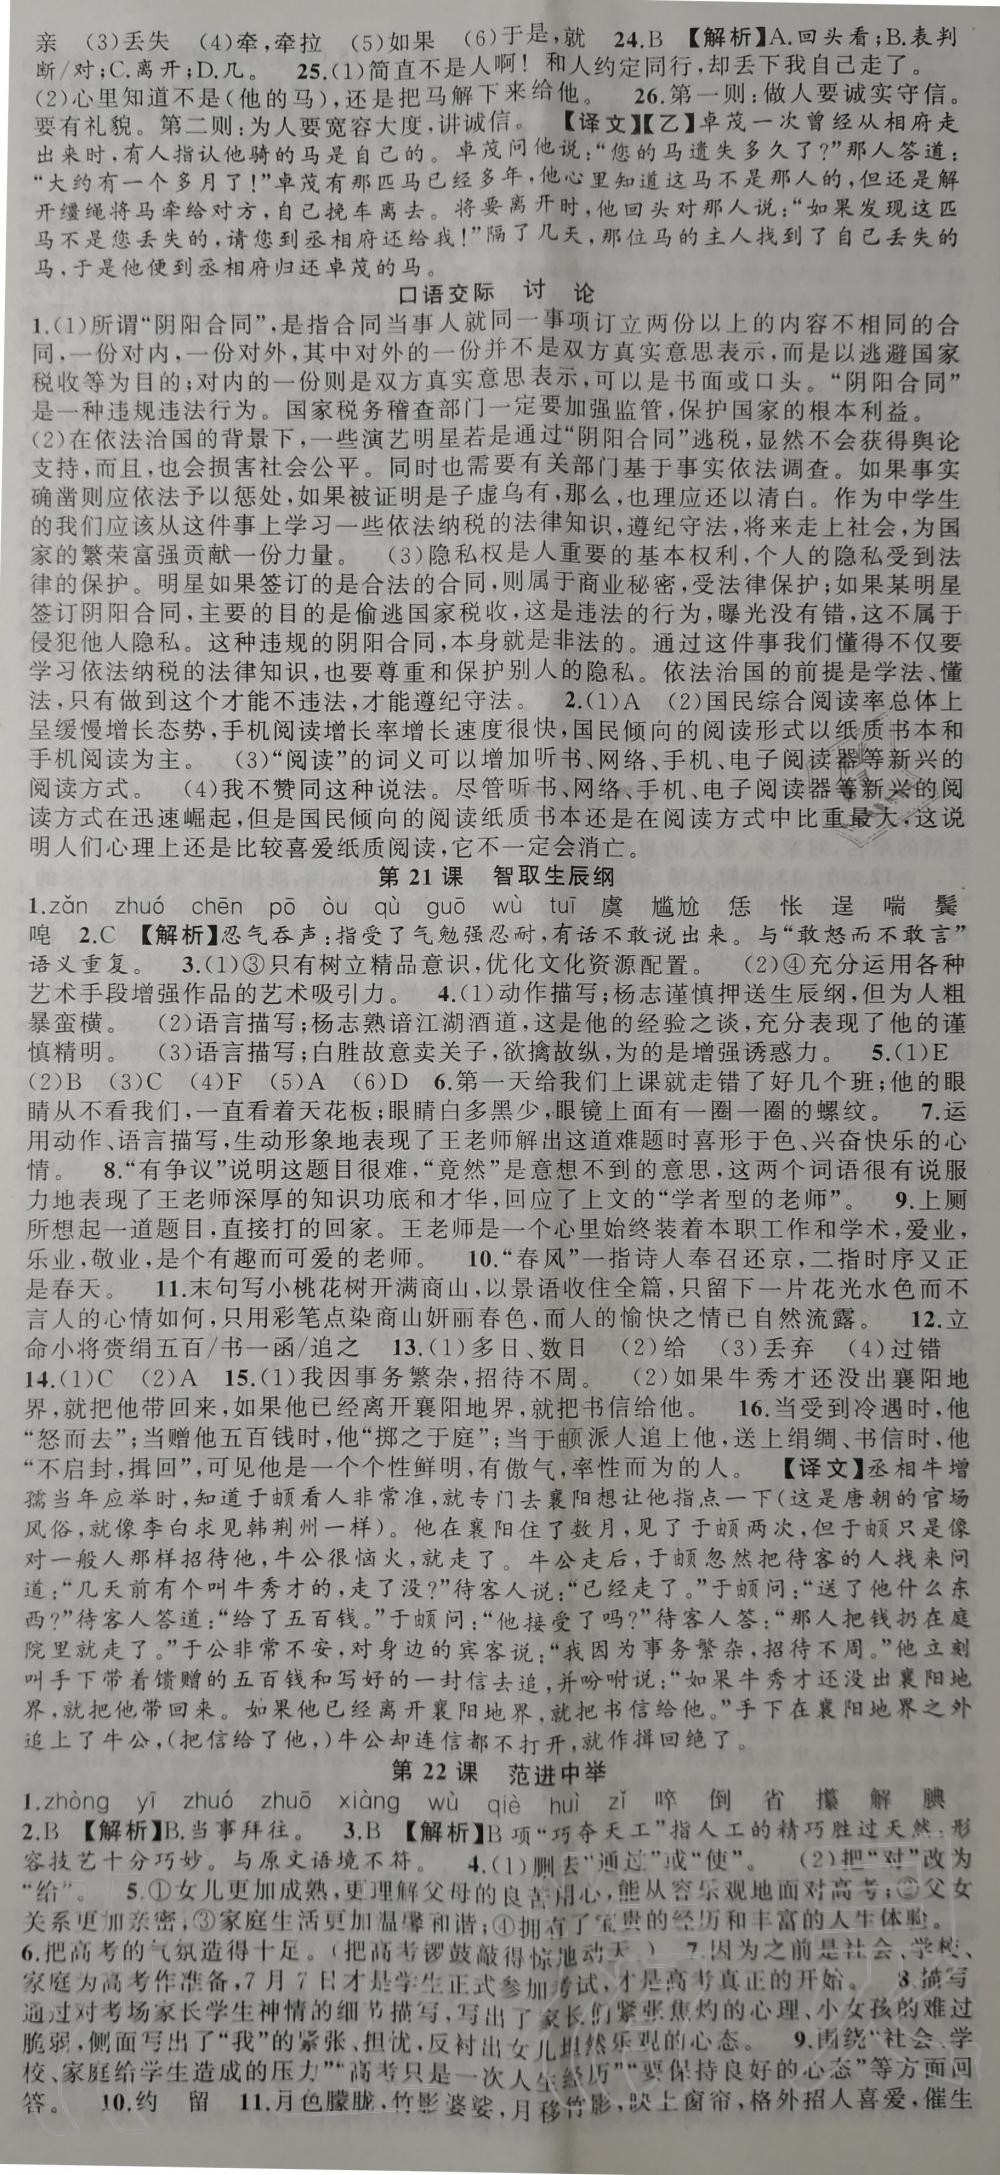 亲　(3)丢失　(4)牵,牵拉　(5)如果　(6)于是,就　24.B　【解析】A.回头看;B.表判
断/对;C.离开;D.几。　25.(1)简直不是人啊！和人约定同行,却丢下我自己走了。
(2)心里知道不是(他的马),还是把马解下来给他。　26.第一则:做人要诚实守信。
要有礼貌。第二则:为人要宽容大度,讲诚信。　【译文】【乙】卓茂一次曾经从相府走
出来时,有人指认他骑的马是自己的。卓茂问他说:“您的马遗失多久了?”那人答道:
“大约有一个多月了!”卓茂有那匹马已经多年,他心里知道这马不是那人的,但还是解
开缰绳将马牵给对方,自己挽车离去。将要离开时,他回头对那人说:“如果发现这匹
马不是您丢失的,请您到丞相府还给我!”隔了几天,那位马的主人找到了自己丢失的
马,于是他便到丞相府归还卓茂的马。
口语交际　讨　论
1.(1)所谓“阴阳合同”,是指合同当事人就同一事项订立两份以上的内容不相同的合
同,一份对内,一份对外,其中对外的一份并不是双方真实意思表示,而是以逃避国家
税收等为目的;对内的一份则是双方真实意思表示,可以是书面或口头。“阴阳合同”
是一种违规违法行为。国家税务稽查部门一定要加强监管,保护国家的根本利益。
(2)在依法治国的背景下,一些演艺明星若是通过“阴阳合同”逃税,显然不会获得舆论
支持,而且,也会损害社会公平。同时也需要有关部门基于事实依法调查。如果事实
确凿则应依法予以惩处,如果被证明是子虚乌有,那么,也理应还以清白。作为中学生
的我们应该从这件事上学习一些依法纳税的法律知识,遵纪守法,将来走上社会,为国
家的繁荣富强贡献一份力量。　(3)隐私权是人重要的基本权利,个人的隐私受到法
律的保护。明星如果签订的是合法的合同,则属于商业秘密,受法律保护;如果某明星
签订阴阳合同,主要的目的是偷逃国家税收,这是违法的行为,曝光没有错,这不属于
侵犯他人隐私。这种违规的阴阳合同,本身就是非法的。通过这件事我们懂得不仅要
学习依法纳税的法律知识,也要尊重和保护别人的隐私。依法治国的前提是学法、懂
法,只有做到这个才能不违法,才能遵纪守法。　2.(1)A　(2)国民综合阅读率总体上
呈缓慢增长态势,手机阅读增长率增长速度很快,国民倾向的阅读形式以纸质书本和
手机阅读为主。　(3)“阅读”的词义可以增加听书、网络、手机、电子阅读器等新兴的
阅读方式。　(4)我不赞同这种说法。尽管听书、网络、手机、电子阅读器等新兴的阅
读方式在迅速崛起,但是国民倾向的阅读纸质书本还是在阅读方式中比重最大,这说
明人们心理上还是比较喜爱纸质阅读,它不一定会消亡。
第 21 课　智取生辰纲
1.zǎn　zhuó　chēn　pō　òu　qù　guō　wù　tuī　虞　尴尬　恁　怅　逞　喘　鬓
唣　2.C　【解析】忍气吞声:指受了气勉强忍耐,有话不敢说出来。与“敢怒而不敢言”
语义重复。　3.(1)③只有树立精品意识,优化文化资源配置。　(2)④充分运用各种
艺术手段增强作品的艺术吸引力。　4.(1)动作描写;杨志谨慎押送生辰纲,但为人粗
暴蛮横。　(2)语言描写;杨志熟谙江湖酒道,这是他的经验之谈,充分表现了他的谨
慎精明。　(3)语言描写;白胜故意卖关子,欲擒故纵,为的是增强诱惑力。　5.(1)E
(2)B　(3)C　(4)F　(5)A　(6)D　6.第一天给我们上课就走错了好几个班;他的眼
睛从不看我们,一直看着天花板;眼睛白多黑少,眼镜上面有一圈一圈的螺纹。　7.运
用动作、语言描写,生动形象地表现了王老师解出这道难题时喜形于色、兴奋快乐的心
情。　8.“有争议”说明这题目很难,“竟然”是意想不到的意思,这两个词语很有说服
力地表现了王老师深厚的知识功底和才华,回应了上文的“学者型的老师”。　9.上厕
所想起一道题目,直接打的回家。王老师是一个心里始终装着本职工作和学术,爱业,
乐业,敬业,是个有趣而可爱的老师。　10.“春风”一指诗人奉召还京,二指时序又正
是春天。　11.末句写小桃花树开满商山,以景语收住全篇,只留下一片花光水色而不
言人的心情如何,只用彩笔点染商山妍丽春色,而人的愉快之情已自然流露。　12.立
命小将赍绢五百/书一函/追之　13.(1)多日、数日　(2)给　(3)丢弃　(4)过错
14.(1)C　(2)A　15.(1)我因事务繁杂,招待不周。　(2)如果牛秀才还没出襄阳地
界,就把他带回来,如果他已经离开襄阳地界,就把书信给他。　16.当受到冷遇时,他
“怒而去”;当赠他五百钱时,他“掷之于庭”;当于頔派人追上他,送上绢绸、书信时,他
“不启封,揖回”,可见他是一个个性鲜明,有傲气,率性而为的人。　【译文】丞相牛增
孺当年应举时,知道于頔看人非常准,就专门去襄阳想让他指点一下(这是唐朝的官场
风俗,就像李白求见韩荆州一样)。他在襄阳住了数月,见了于頔两次,但于頔只是像
对一般人那样招待他,牛公很恼火,就走了。牛公走后,于頔忽然把待客的人找来问
道:“几天前有个叫牛秀才的,走了没?”待客人说:“已经走了。”于頔问:“送了他什么东
西?”待客人答道:“给了五百钱。”于頔问:“他接受了吗?”待客人答:“那人把钱扔在庭
院里就走了。”于公非常不安,对身边的宾客说:“我因为事务繁杂,招待不周。”他立刻
叫手下带着馈赠的五百钱和写好的一封信去追,并吩咐说:“如果牛秀才还没出襄阳地
界,就把他带回来。如果他已经离开襄阳地界,就把书信给他。”手下在襄阳地界之外
追上了牛公,(把信给了他,)牛公却连信都不打开,就作揖回绝了。
第 22 课　范进中举
1.zhòng　yī　zhuó　zhuō　xiàng　wù　qiè　huì　zǐ　啐　倒　省　攥　解　腆
2.B　【解析】B.当事拜往。　3.B　【解析】B 项“巧夺天工”指人工的精巧胜过天然,形
容技艺十分巧妙。与原文语境不符。　4.(1)删去“通过”或“使”。　(2)把“对”改为
“给”。　5.①女儿更加成熟,更理解父母的良苦用心,能从容乐观地面对高考;②父女
关系更加亲密;③家庭生活更加温馨和谐;④拥有了宝贵的经历和丰富的人生体验。
6.把高考的气氛造得十足。(把高考锣鼓敲得惊地动天。)　7.因为之前是社会、学校、
家庭为高考作准备,7 月 7 日才是学生正式参加考试,才是高考真正的开始。　8.描写
通过对考场家长学生神情的细节描写,写出了家长们紧张焦灼的心理、小女孩的难过
脆弱,侧面写出了“我”的紧张、担忧,反衬出女儿坦然乐观的心态。　9.围绕“社会、学
校、家庭给学生造成的压力”“高考只是一次人生经历”“要保持良好的心态”等方面回
答。　10.约　留　11.月色朦胧,竹影婆娑,月移竹影,映上窗帘,格外招人喜爱,催生